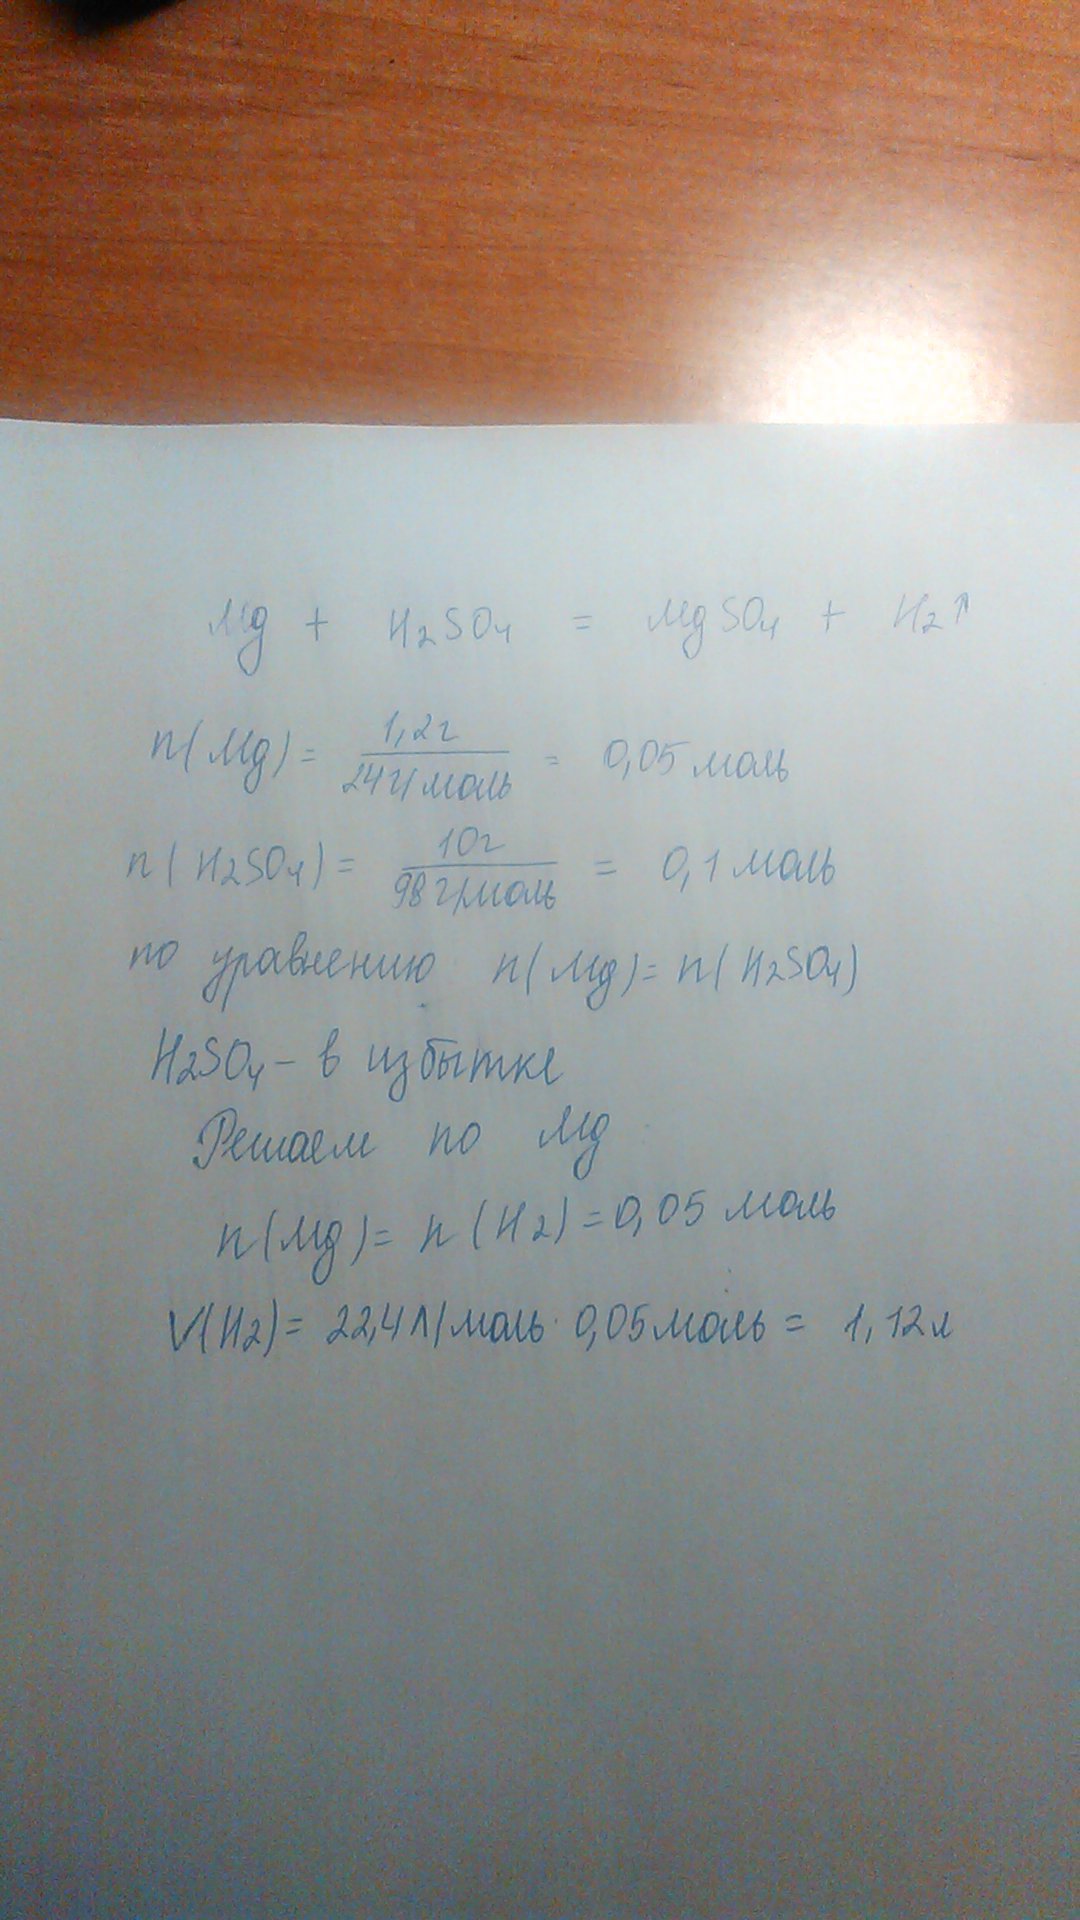 Mg + H2SO4 = MgSO4 + H2↑
n(Mg) = 1,2г / 24г/моль = 0,05 моль
n(H2SO4) = 10г / 98г/моль = 0,1 моль
по уравнению n(Mg) = n(H2SO4)
H2SO4 – в избытке
Решаем по Mg
n(Mg) = n(H2) = 0,05 моль
V(H2) = 22,4л/моль · 0,05моль = 1,12л